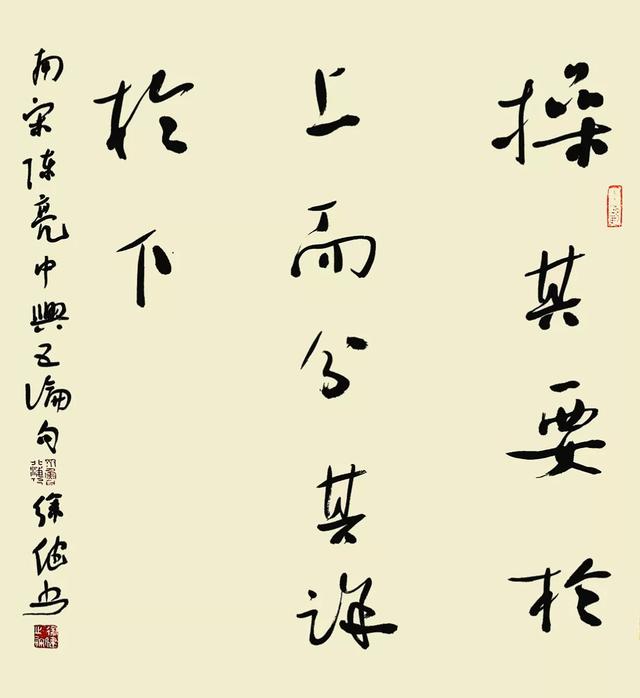 操其要於
上而分其詳
於下
南宋陳亮中興五論句
徐健书